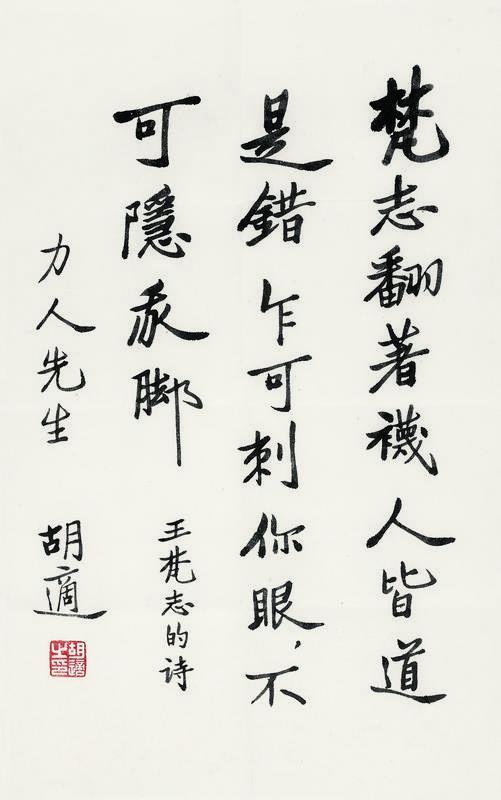 梵志翻著襪人皆道
是錯乍可刺你眼，不
可隱我脚
王梵志的诗
力人先生
胡適
胡適之印